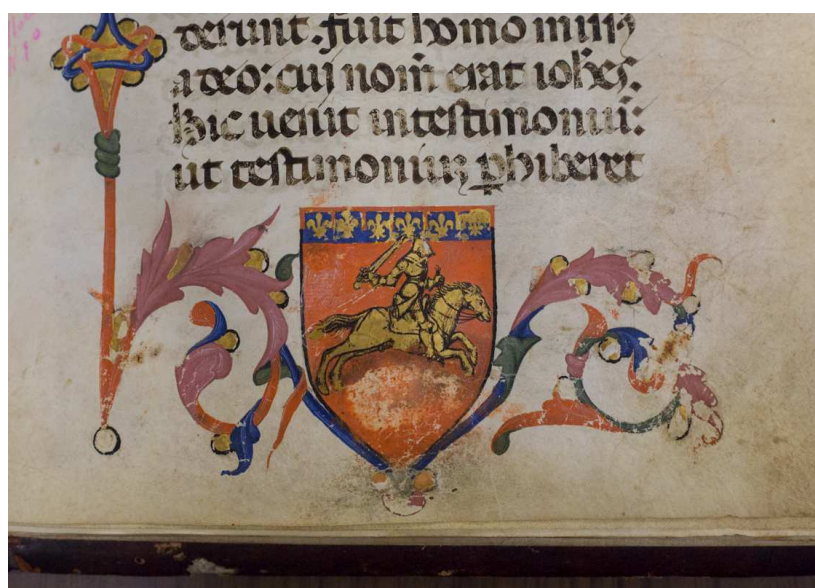 derunt. fuit homo missꝫ
a deo: cuj nom̄ erat ioħes.
Hic uenit intestimoniuꝫ:
ut testimoniuꝫ ꝑhiberet